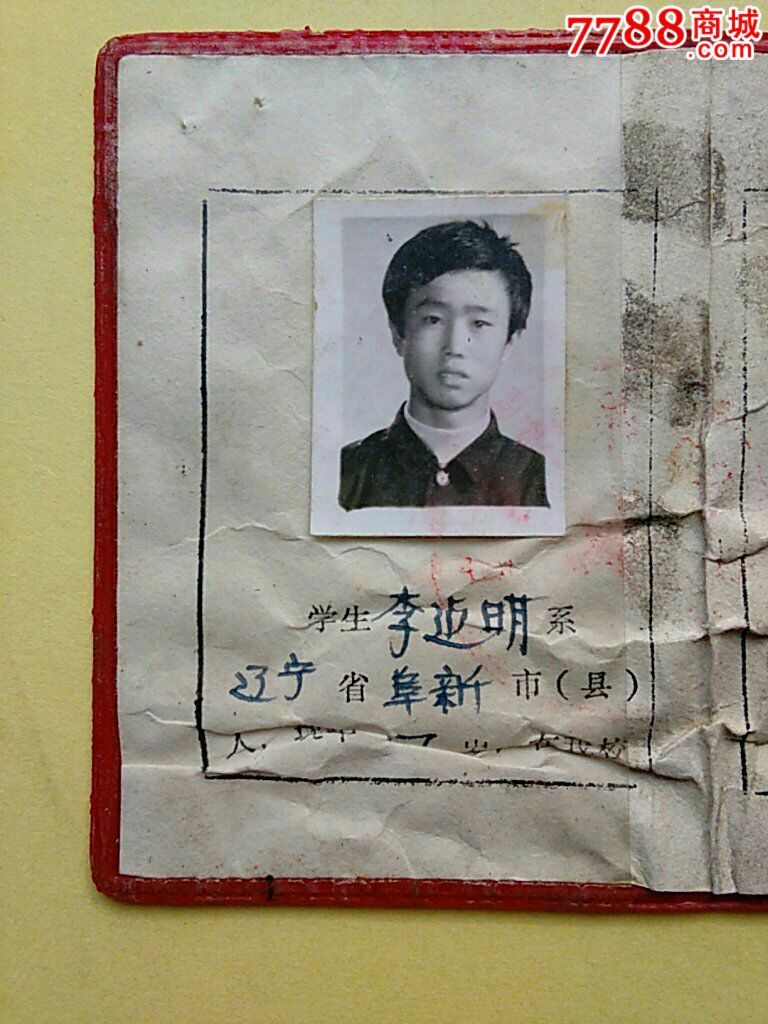 7788商城
.com
学生李迎明系
辽宁省阜新市(县)
人,现年 岁,在我校